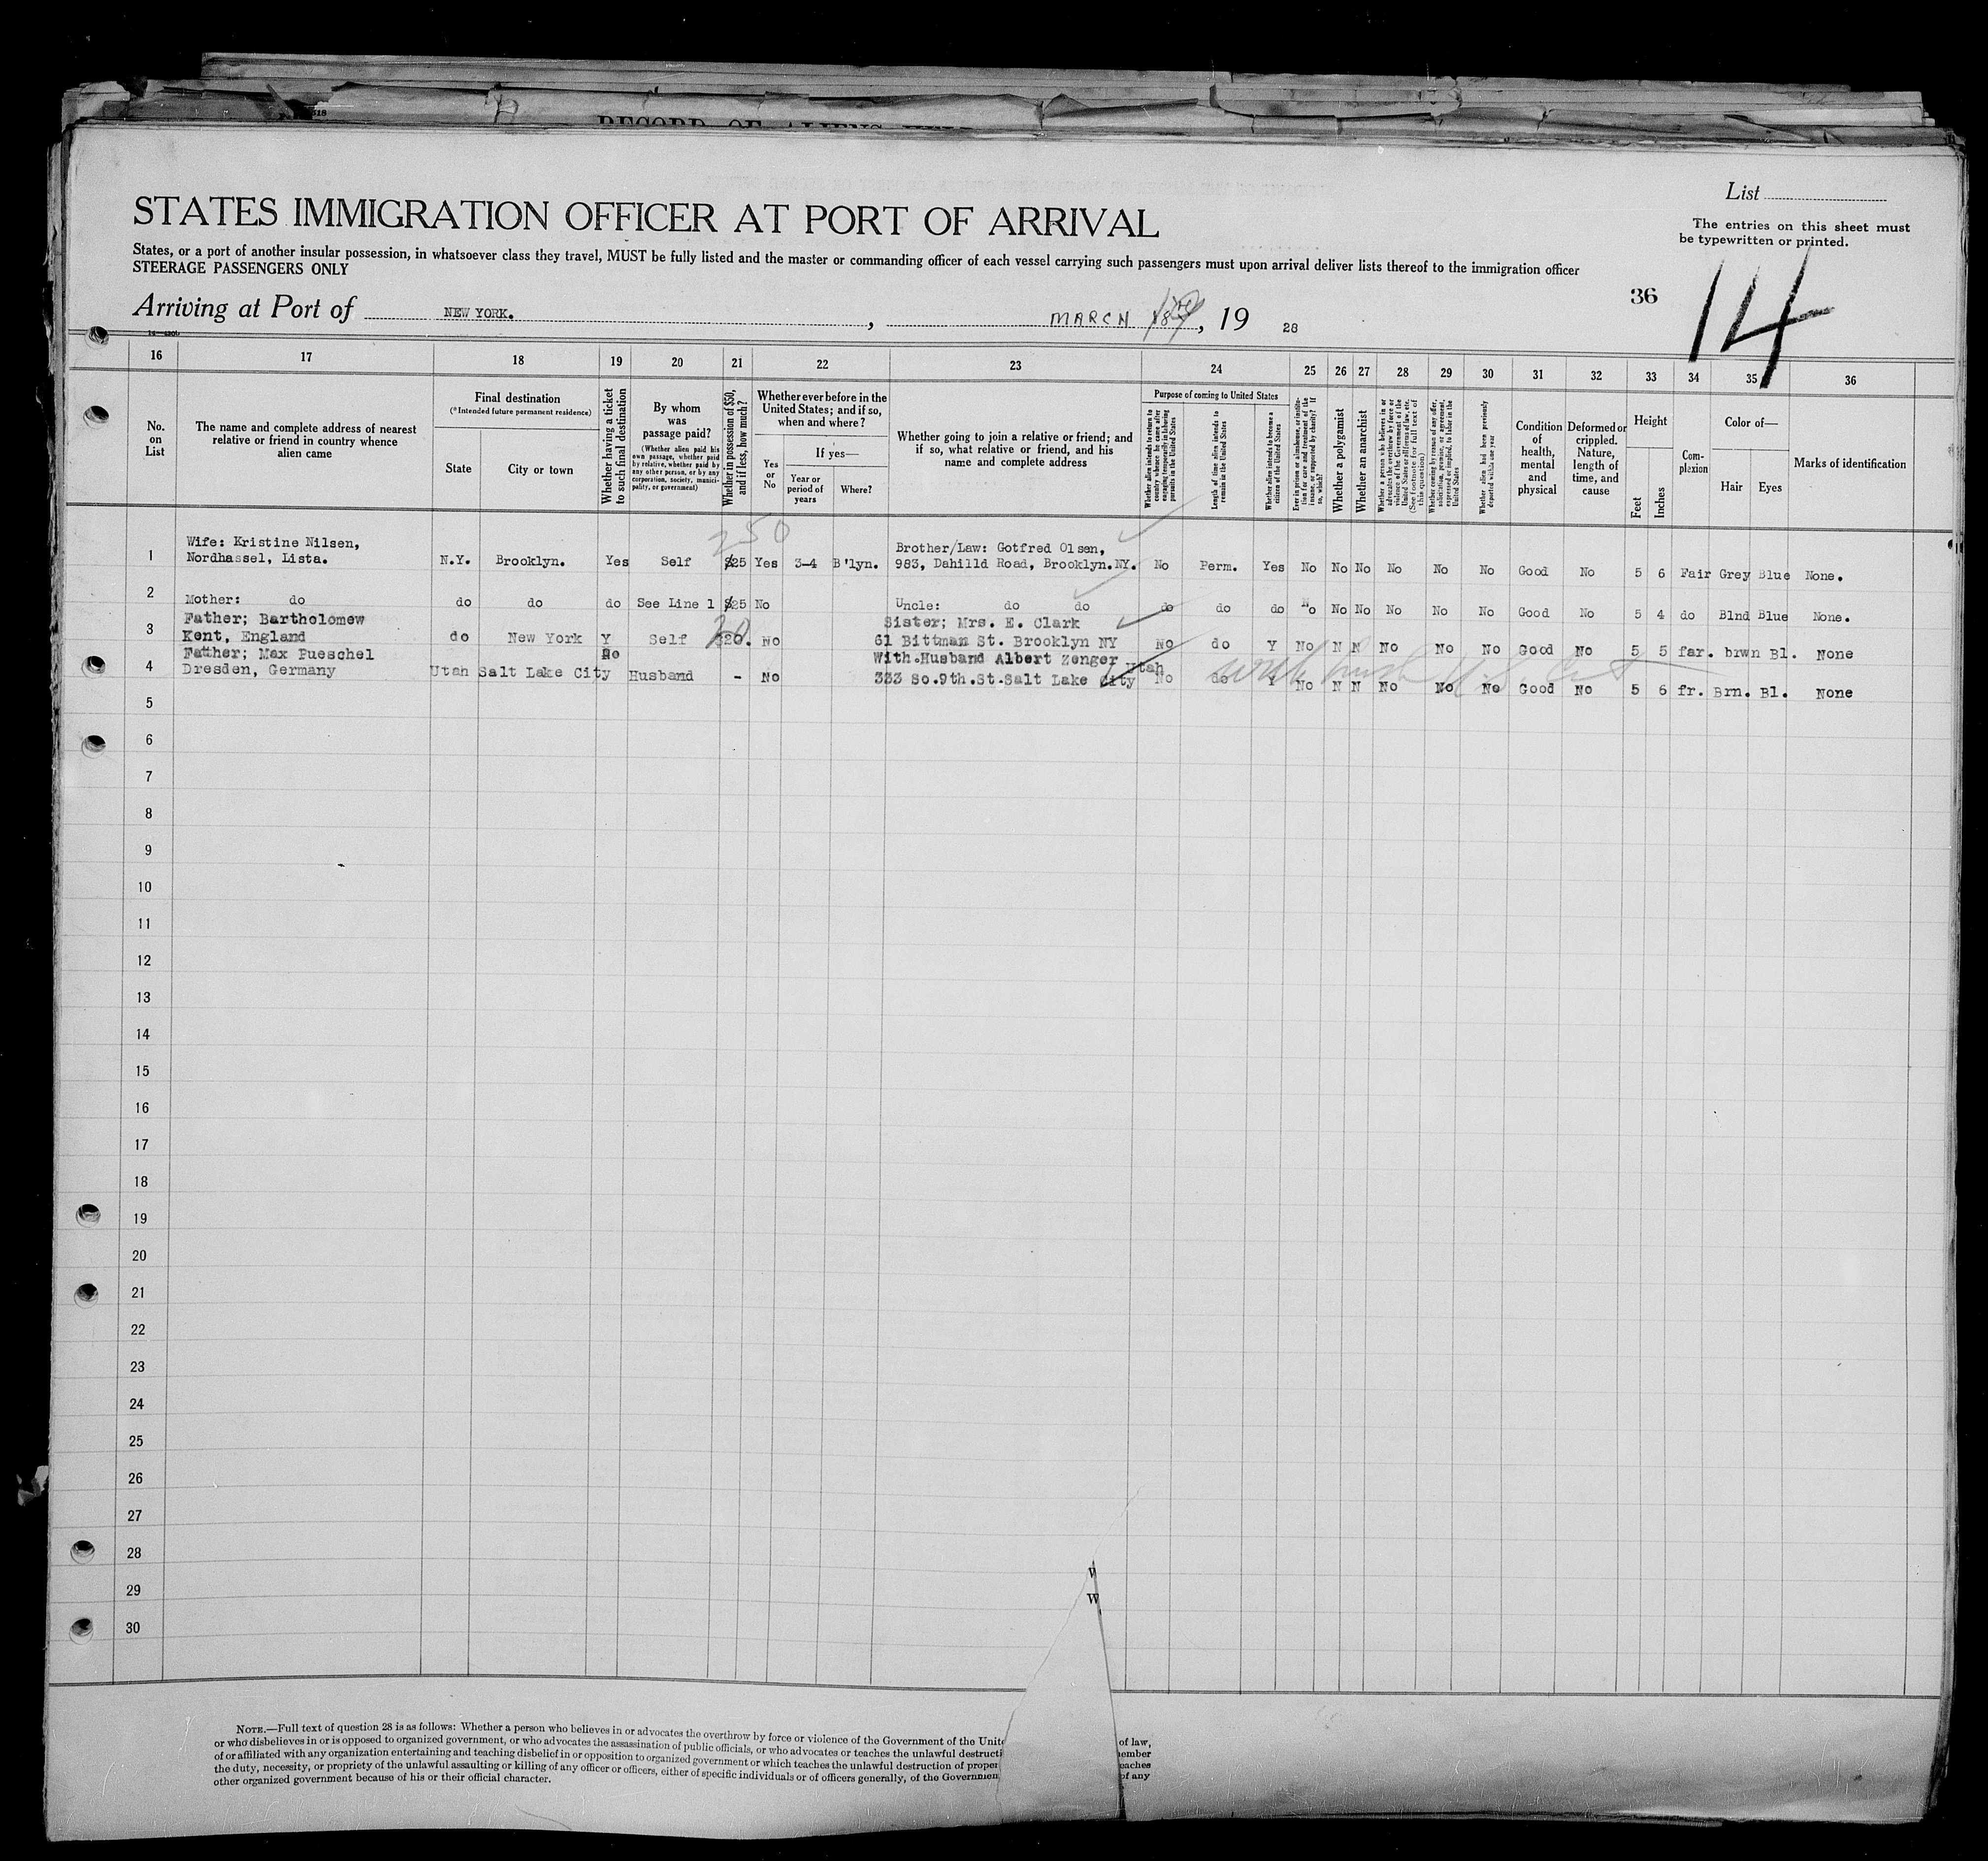 RECORD OF ALIENS HELD
STATES IMMIGRATION OFFICER AT PORT OF ARRIVAL
List
The entries on this sheet must
be typewritten or printed.
States, or a port of another insular possession, in whatsoever class they travel, MUST be fully listed and the master or commanding officer of each vessel carrying such passengers must upon arrival deliver lists thereof to the immigration officer
STEERAGE PASSENGERS ONLY
36
14
Arriving at Port of NEW YORK. , MARCH , 19 28
16 17 18 19 20 21 22 23 24 25 26 27 28 29 30 31 32 33 34 35 36
No. on List
The name and complete address of nearest relative or friend in country whence alien came
Final destination
(*Intended future permanent residence)
State
City or town
Whether having a ticket to such final destination
By whom was passage paid?
(Whether alien paid his own passage, whether paid by relative, whether paid by any other person, or by any corporation, society, municipality, or government)
Whether in possession of $50, and if less, how much?
Whether ever before in the United States; and if so, when and where?
Yes or No
If yes—
Year or period of years
Where?
Whether going to join a relative or friend; and if so, what relative or friend, and his name and complete address
Purpose of coming to United States
Whether alien intends to return to country whence he came after engaging temporarily in laboring pursuits in the United States
Length of time alien intends to remain in the United States
Whether alien intends to become a citizen of the United States
Ever in prison or almshouse, or institution for care and treatment of the insane, or supported by charity? If so, which?
Whether a polygamist
Whether an anarchist
Whether a person who believes in or advocates the overthrow by force or violence of the Government of the United States or all forms of law, etc. (See footnote for full text of this question)
Whether coming by reason of any offer, solicitation, promise, or agreement, expressed or implied, to labor in the United States
Whether alien had been previously deported within one year
Condition of health, mental and physical
Deformed or crippled. Nature, length of time, and cause
Height
Feet
Inches
Complexion
Color of—
Hair
Eyes
Marks of identification
250
Wife: Kristine Nilsen, Brother/Law: Gotfred Olsen,
1 Nordhassel, Lista. N.Y. Brooklyn. Yes Self $25 Yes 3-4 B'lyn. 983, Dahilld Road, Brooklyn.NY. No Perm. Yes No No No No No No Good No 5 6 Fair Grey Blue None.
2 Mother: do do do do See Line 1 $25 No Uncle: do do do do do No No No No No No Good No 5 4 do Blnd Blue None.
Father; Bartholomew Sister; Mrs. E. Clark
3 Kent, England do New York Y Self $20. No 61 Bittman St. Brooklyn NY No do Y No N N No No No Good No 5 5 far. brwn Bl. None
Father; Max Pueschel No With.Husband Albert Zenger Utah
4 Dresden, Germany Utah Salt Lake City Husband - No 333 So.9th.St.Salt Lake City No do Y No N N No No No Good No 5 6 fr. Brn. Bl. None
with husb U.S. Cit
5
6
7
8
9
10
11
12
13
14
15
16
17
18
19
20
21
22
23
24
25
26
27
28
29
30
W
W
NOTE.—Full text of question 28 is as follows: Whether a person who believes in or advocates the overthrow by force or violence of the Government of the Unite of law,
or who disbelieves in or is opposed to organized government, or who advocates the assassination of public officials, or who advocates or teaches the unlawful destructi ember
of or affiliated with any organization entertaining and teaching disbelief in or opposition to organized government or which teaches the unlawful destruction of proper eaches
the duty, necessity, or propriety of the unlawful assaulting or killing of any officer or officers, either of specific individuals or of officers generally, of the Governmen of any
other organized government because of his or their official character.